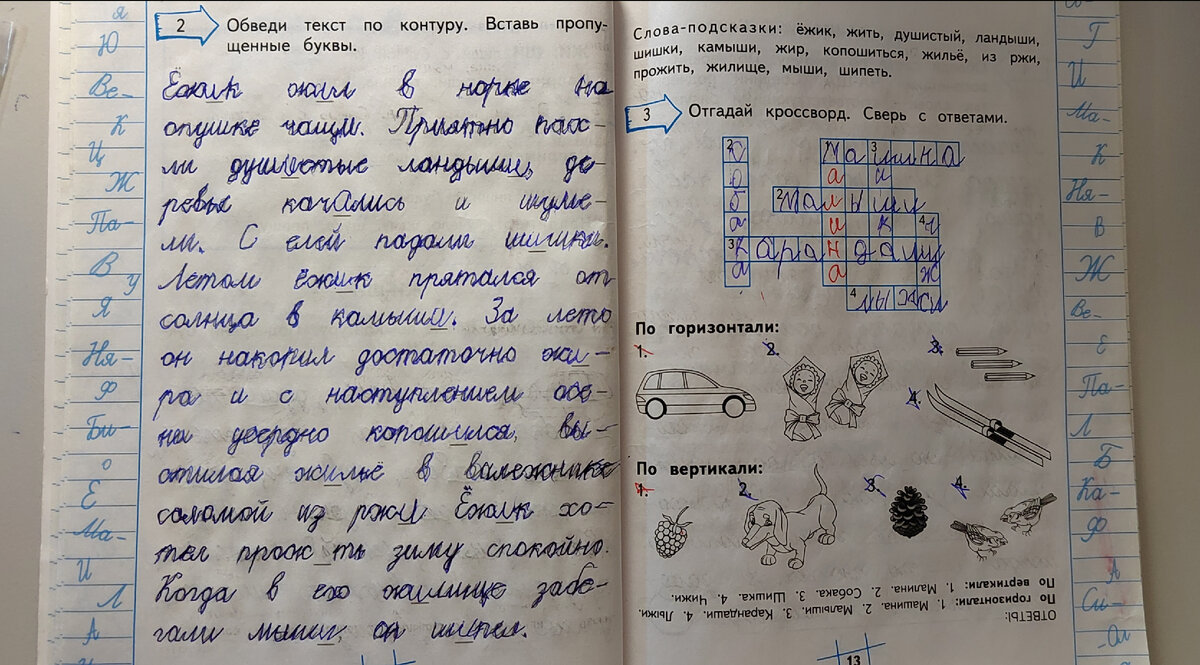 2 Обведи текст по контуру. Вставь пропу-
щенные буквы.
Ёжик жил в норке на
опушке чащи. Приятно пах-
ли душистые ландыши, де-
ревья качались и шуме-
ли. С елей падали шишки.
Летом ёжик прятался от
солнца в камыши. За лето
он накопил достаточно жи-
ра и с наступлением осе-
ни усердно копошился, вы-
стилая жильё в валежнике
соломой из ржи. Ёжик хо-
тел прож_ть зиму спокойно.
Когда в его жилище забе-
гали мыши, он шипел.
я
Ю
Ве-
К
Ц
Ж
Па-
В
У
Я
Ня-
Ф
Би-
о
Е
Ма-
И
Л
А
Слова-подсказки: ёжик, жить, душистый, ландыши,
шишки, камыши, жир, копошиться, жильё, из ржи,
прожить, жилище, мыши, шипеть.
3 Отгадай кроссворд. Сверь с ответами.
Машина
Малыши
Карандаши
Лыжи
По горизонтали:
1. 2. 3.
4.
По вертикали:
1. 2. 3. 4.
ОТВЕТЫ:
По горизонтали: 1. Машина. 2. Малыши. 3. Карандаши. 4. Лыжи.
По вертикали: 1. Малина. 2. Собака. 3. Шишка. 4. Чижи.
13
Г
И
Ма-
К
Ня-
В
Ж
Ве-
Е
Па-
Л
Б
Ка-
Ф
А
Си-